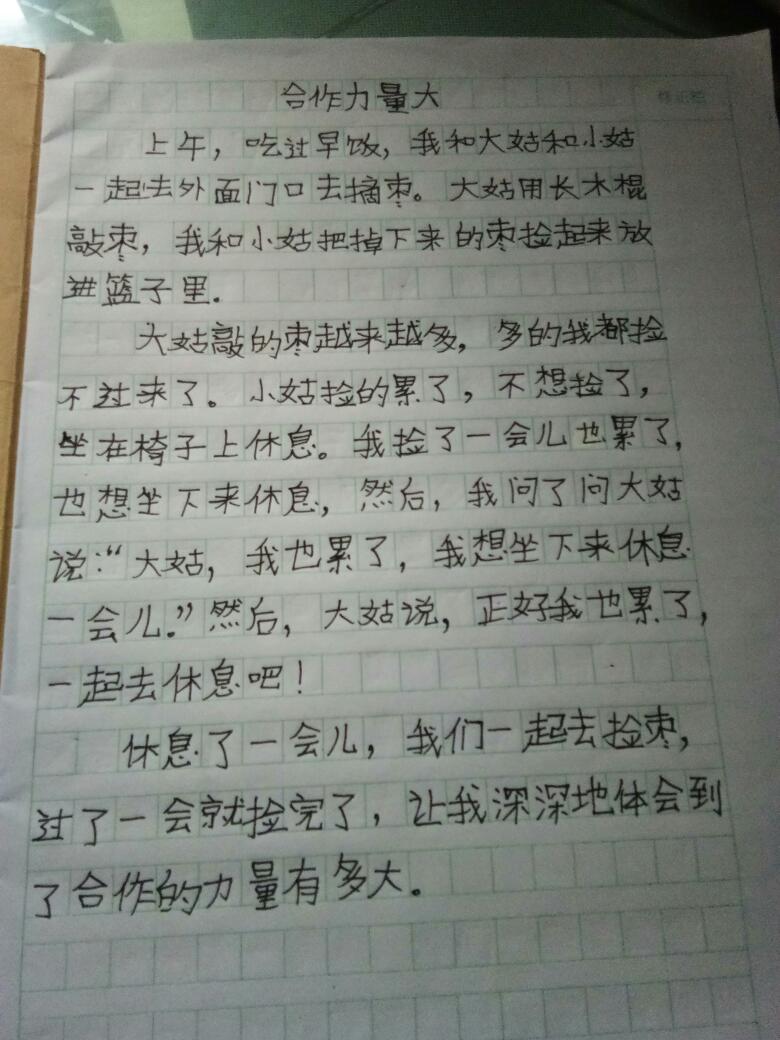 合作力量大
上午，吃过早饭，我和大姑和小姑
一起去外面门口去摘枣。大姑用长木棍
敲枣，我和小姑把掉下来的枣捡起来放
进篮子里.
大姑敲的枣越来越多，多的我都捡
不过来了。小姑捡的累了，不想捡了，
坐在椅子上休息。我捡了一会儿也累了，
也想坐下来休息，然后，我问了问大姑
说：“大姑，我也累了，我想坐下来休息
一会儿.”然后，大姑说，正好我也累了，
一起去休息吧！
休息了一会儿，我们一起去捡枣，
过了一会就捡完了，让我深深地体会到
了合作的力量有多大。